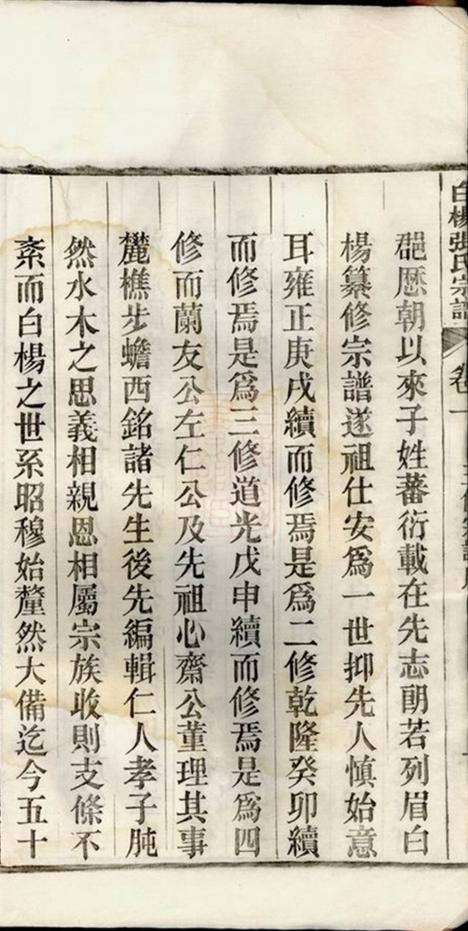 白楊張氏宗譜
卷一
郡歷朝以來子姓蕃衍載在先志朗若列眉白
楊纂修宗譜遂祖仕安為一世抑先人慎始意
耳雍正庚戌續而修焉是為二修乾隆癸卯續
而修焉是為三修道光戊申續而修焉是為四
修而蘭友公左仁公及先祖心齋公董理其事
麓樵步蟾西銘諸先生後先編輯仁人孝子肫
然水木之思義相親恩相屬宗族收則支條不
紊而白楊之世系昭穆始釐然大備迄今五十